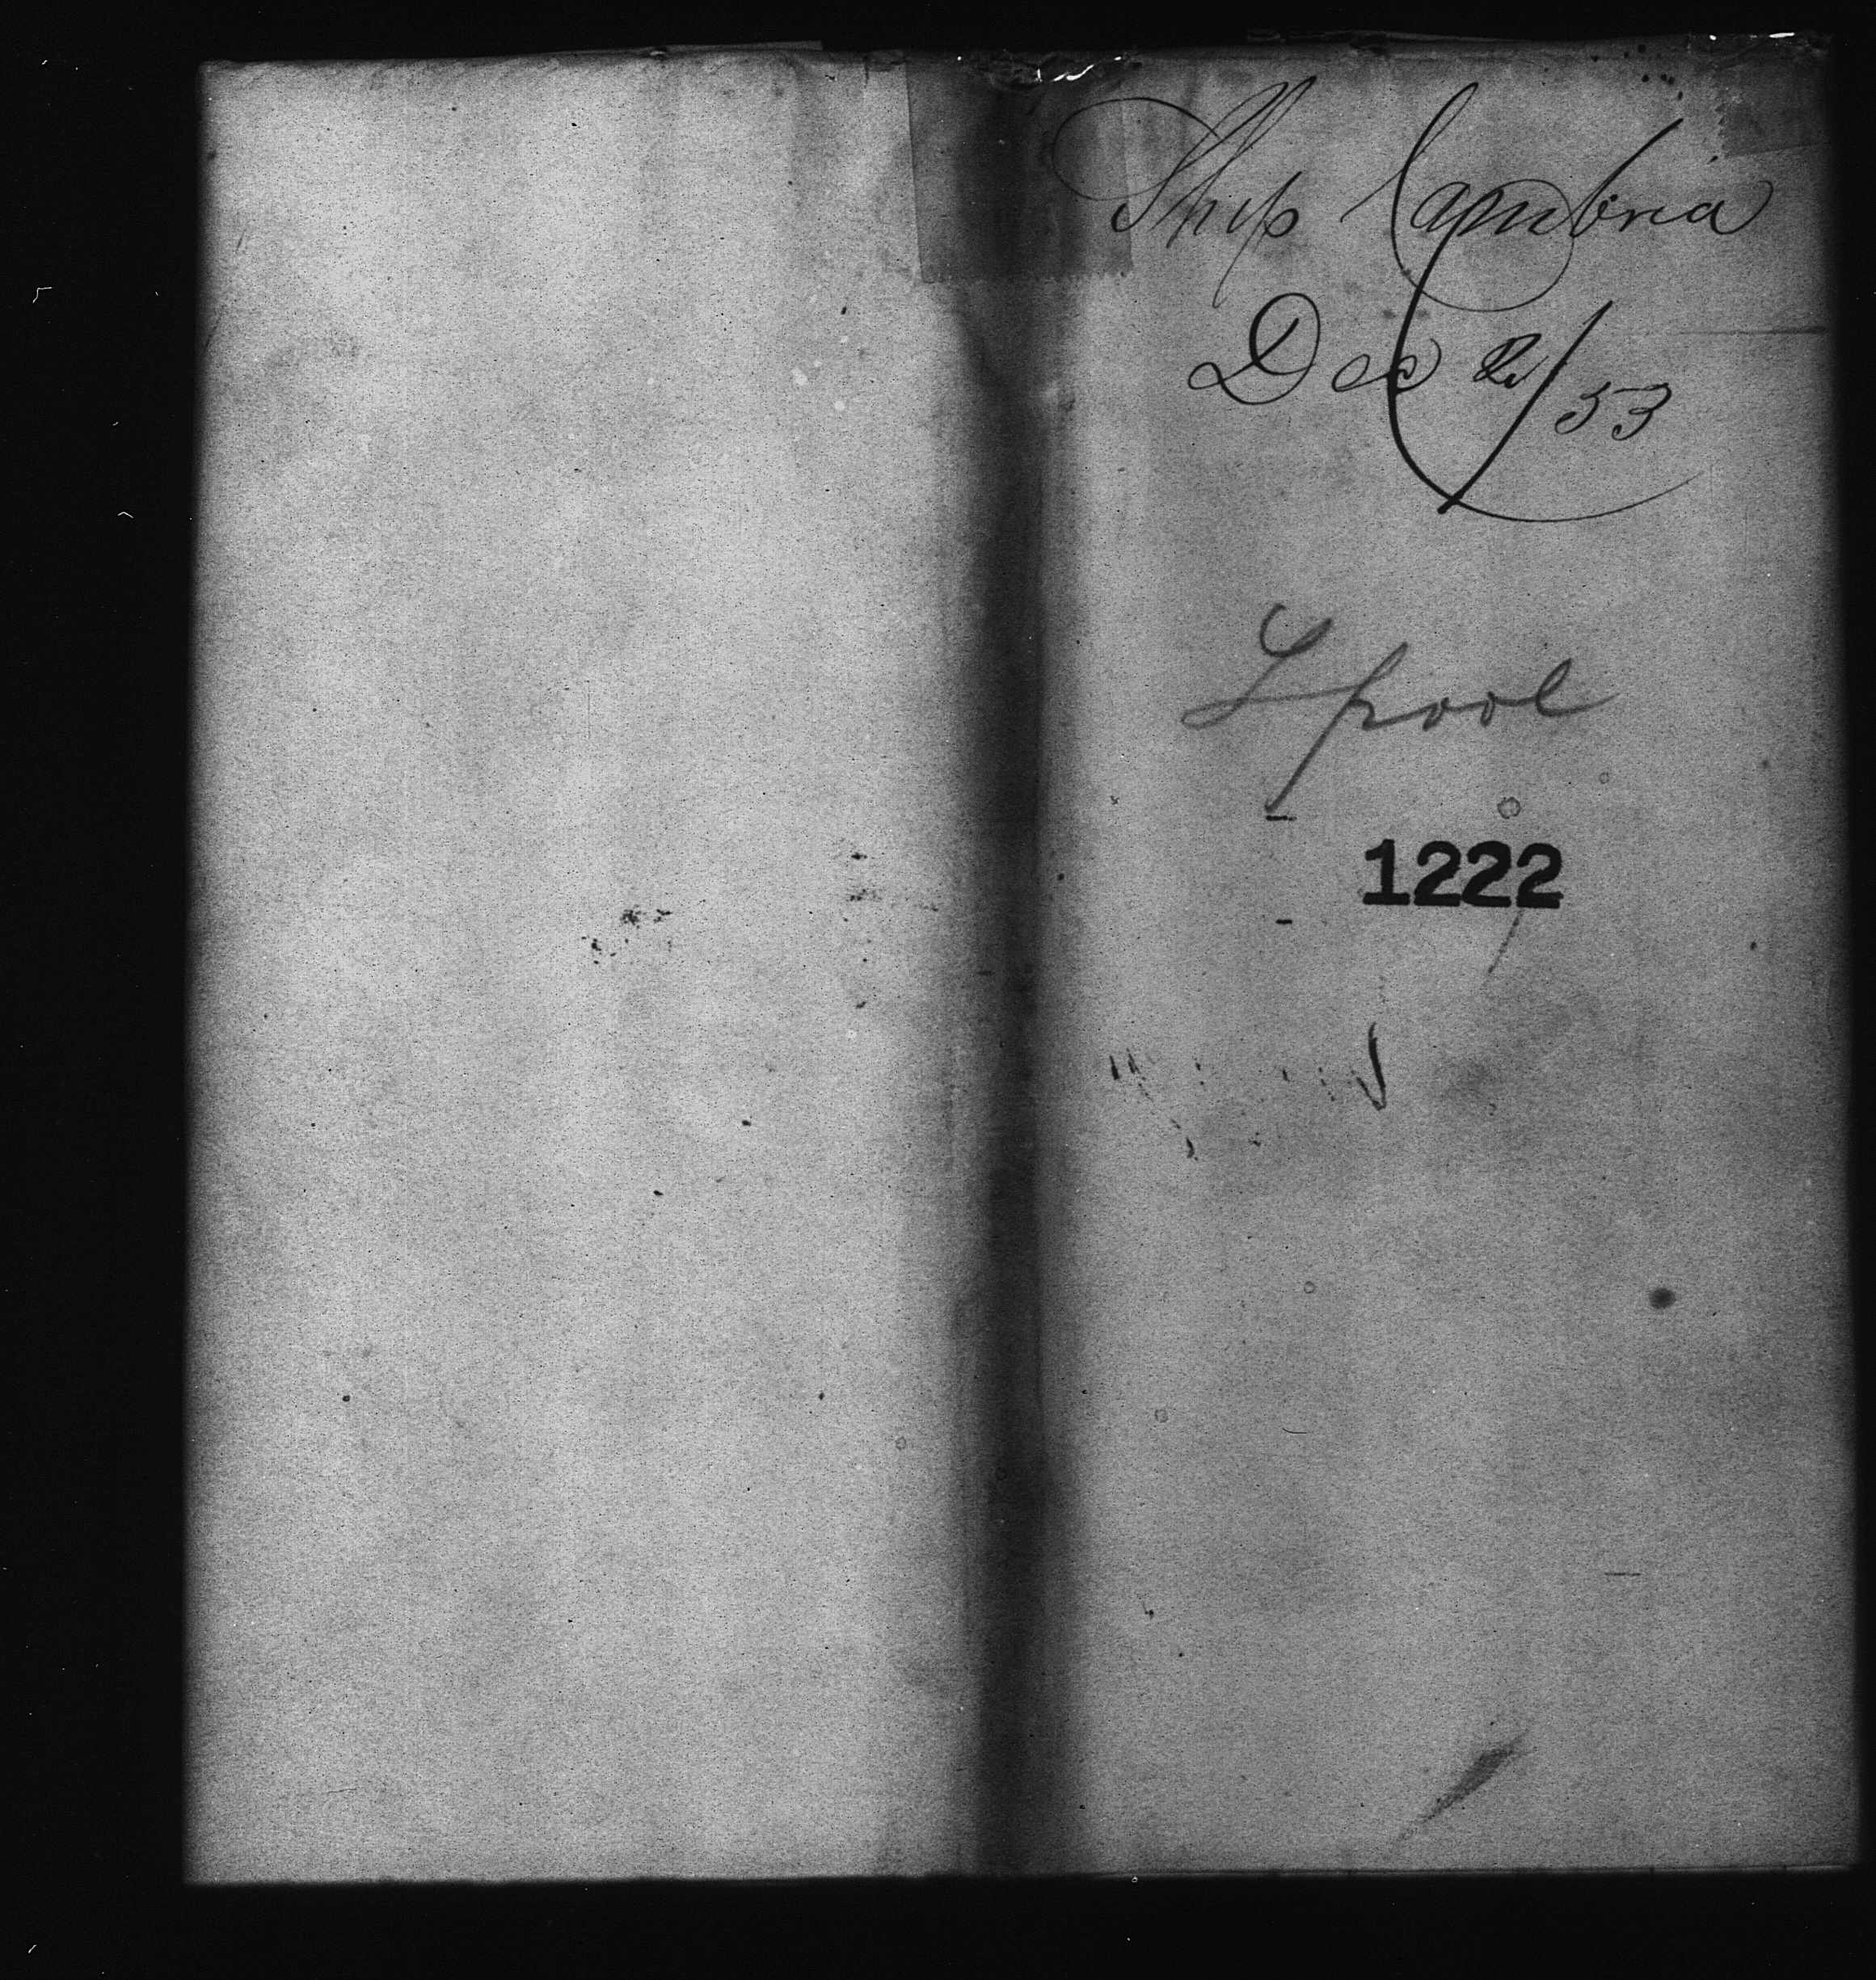 Ship Cambria
Dec 2/53
Lpool
1222